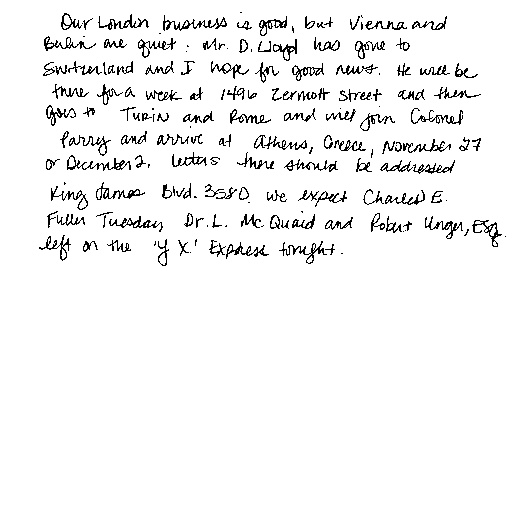 Our London business is good, but Vienna and
Berlin are quiet. Mr. D. Lloyd has gone to
Switzerland and I hope for good news. He will be
there for a week at 1496 Zermott Street and then
goes to Turin and Rome and will join Colonel
Parry and arrive at Athens, Greece, November 27
or December 2. Letters there should be addressed
King James Blvd. 3580. We expect Charles E.
Fuller Tuesday. Dr. L. McQuaid and Robert Unger, Esq.
left on the 'Y X' Express tonight.